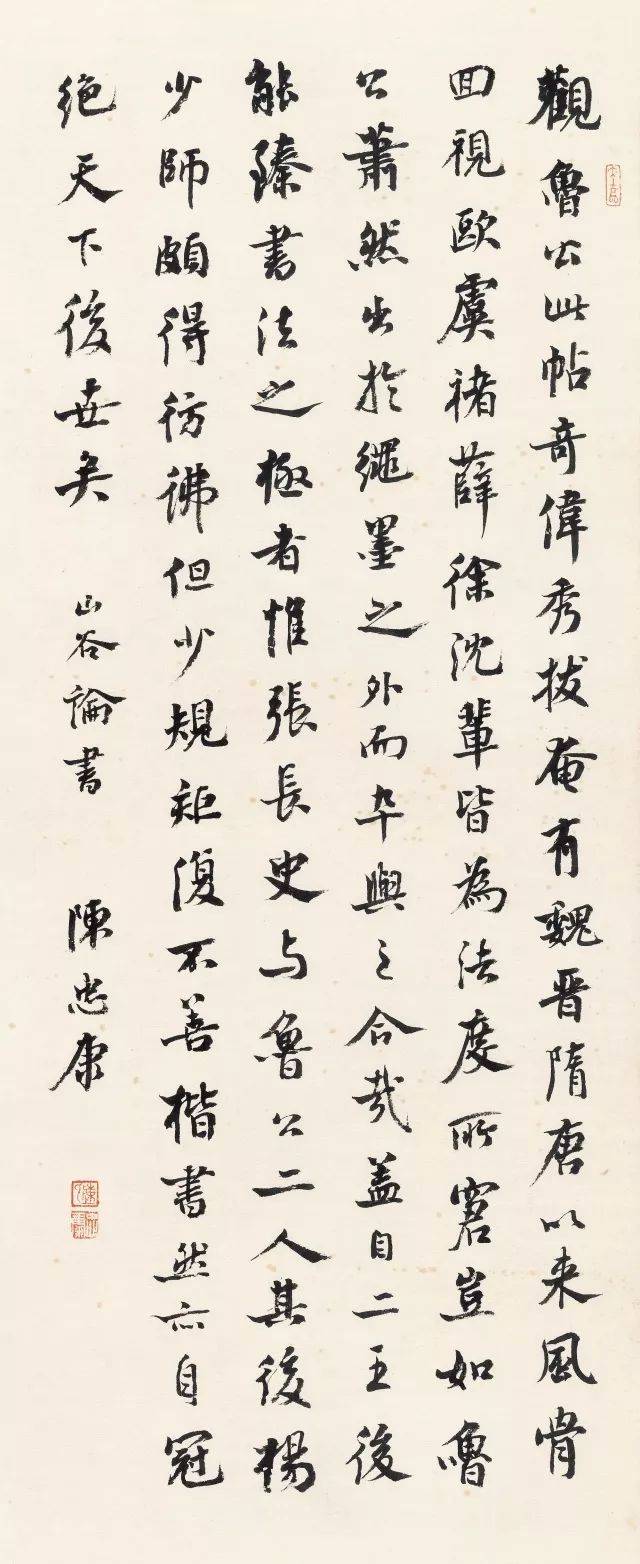 觀魯公此帖奇偉秀拔奄有魏晋隋唐以来風骨
回視歐虞褚薛徐沈輩皆為法度所窘豈如魯
公蕭然出於繩墨之外而卒與之合哉蓋自二王後
能臻書法之極者惟張長史与魯公二人其後楊
少師頗得彷彿但少規矩復不善楷書然亦自冠
絶天下後世矣 山谷論書 陳忠康